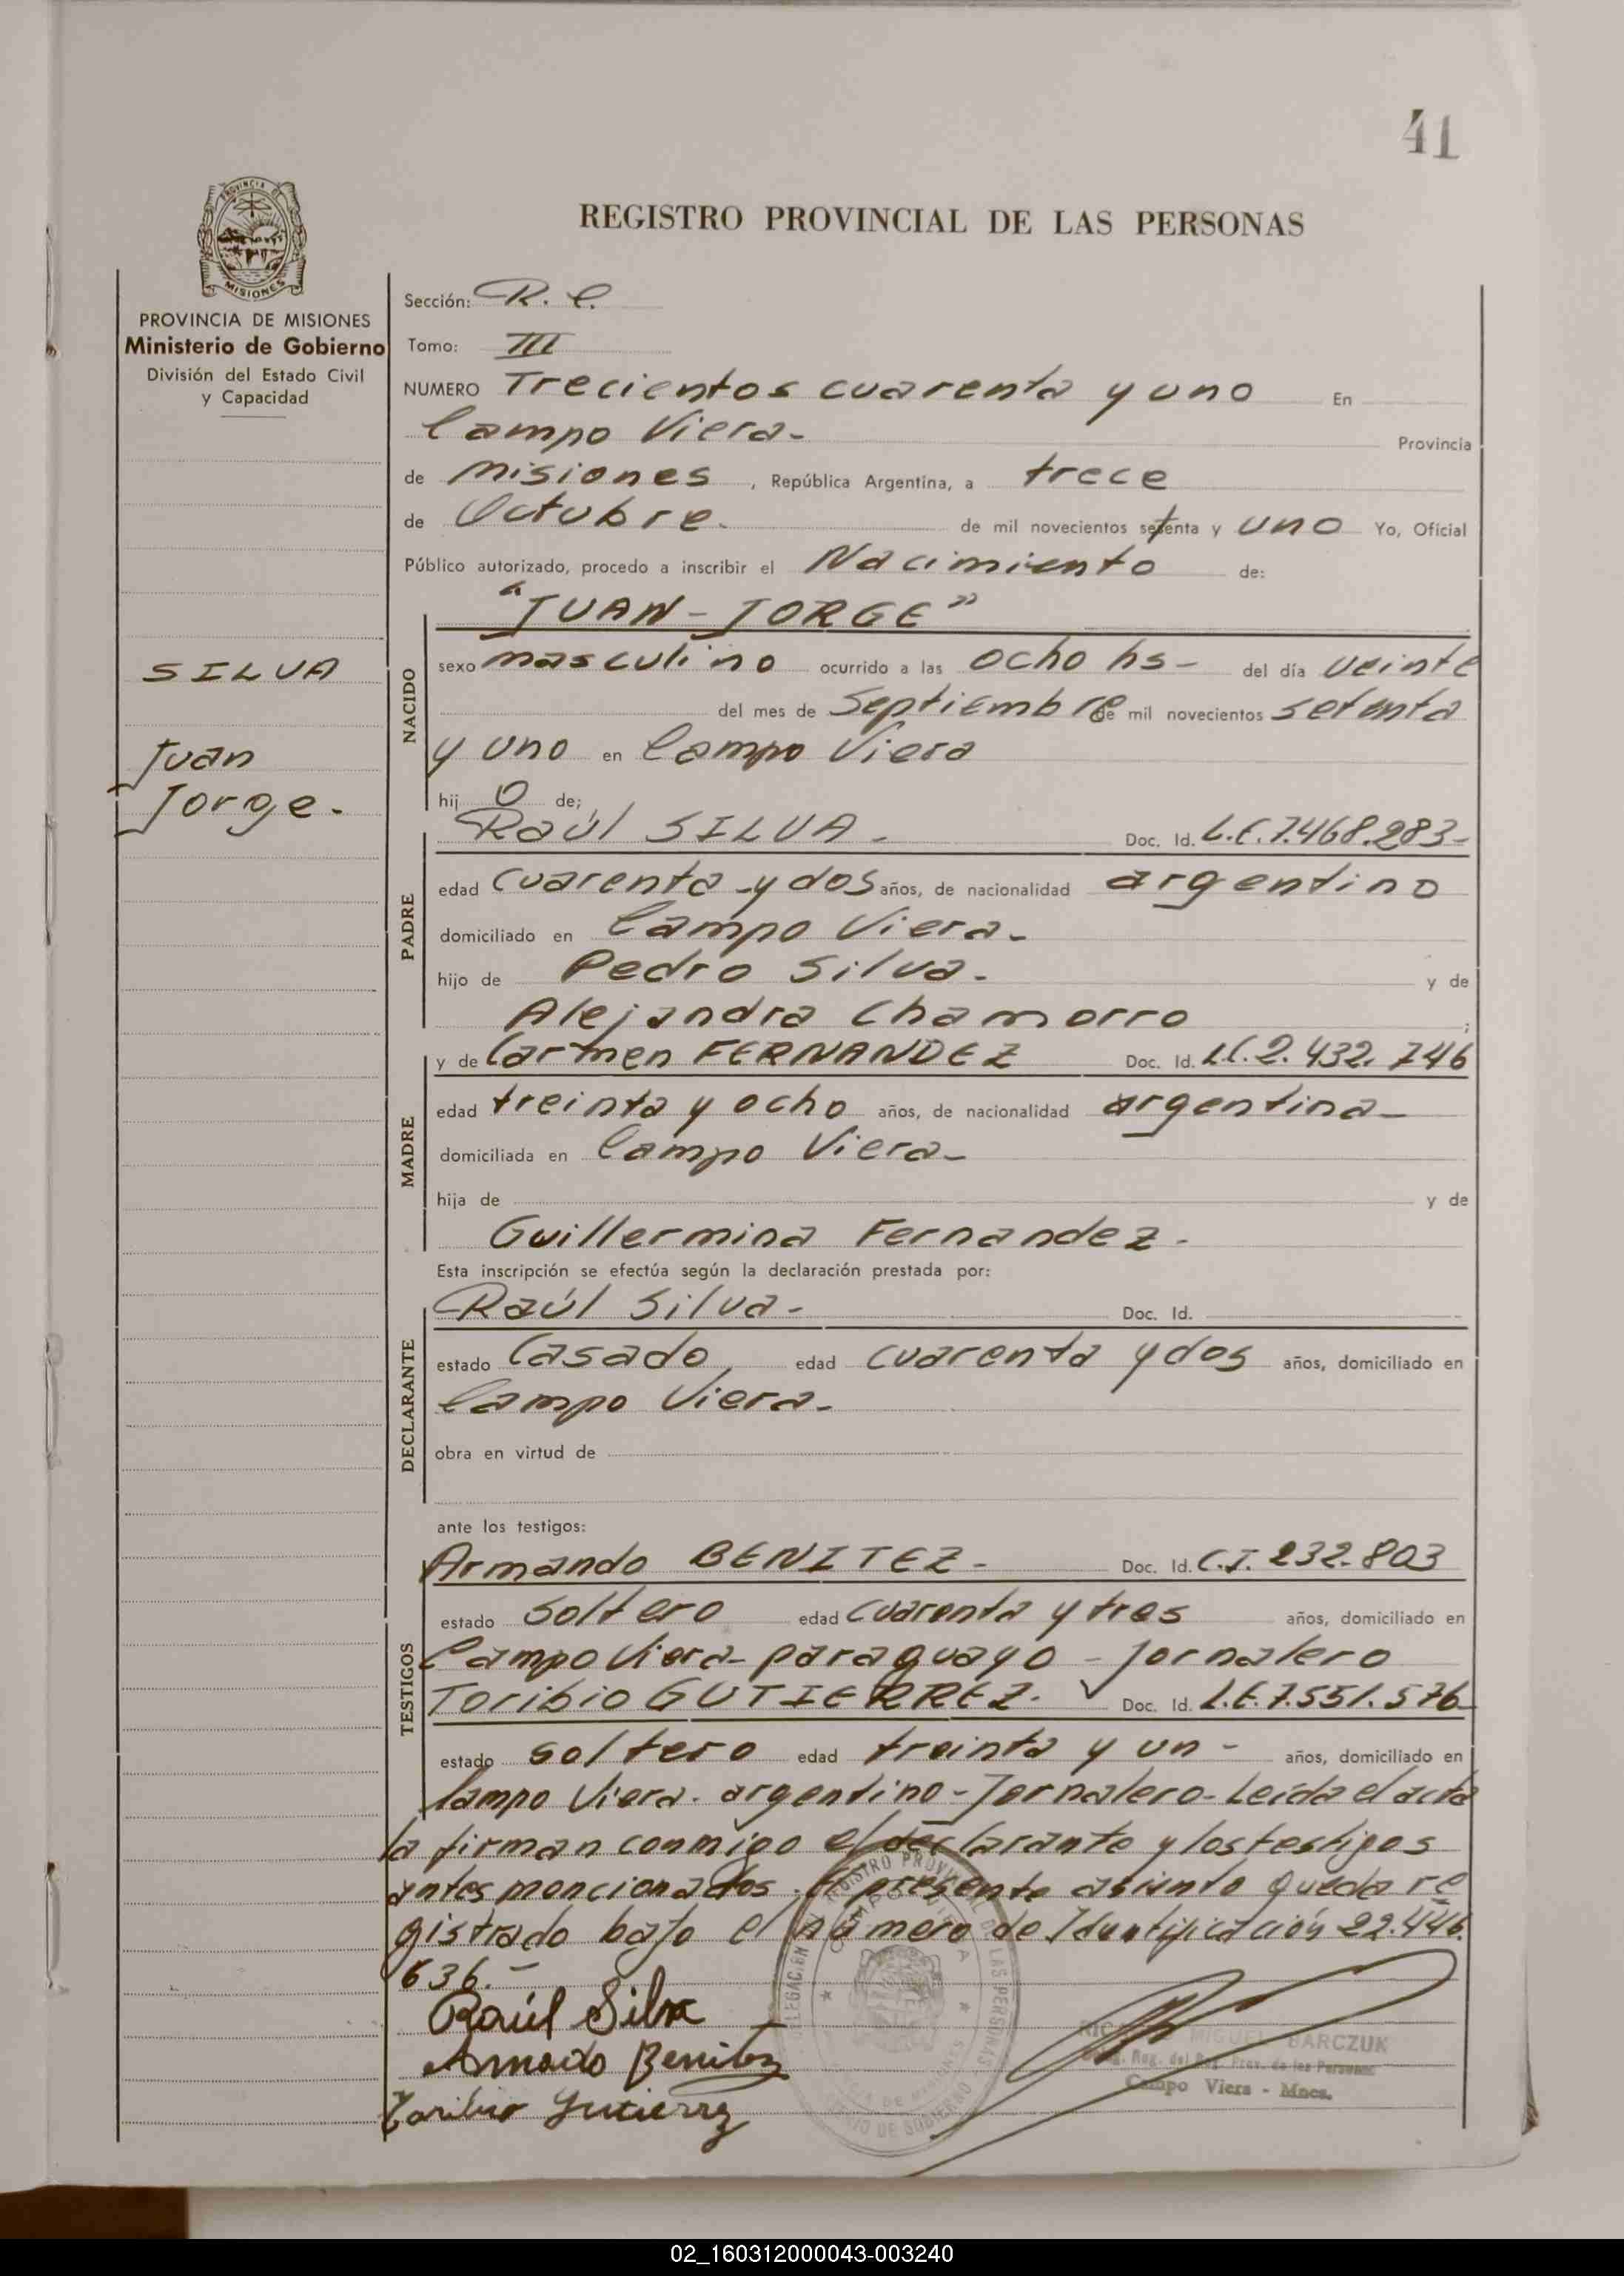 41
REGISTRO PROVINCIAL DE LAS PERSONAS
PROVINCIA DE
MISIONES
PROVINCIA DE MISIONES
Ministerio de Gobierno
División del Estado Civil
y Capacidad
SILVA
Juan
Jorge.
Sección: R. C.
Tomo: III
NUMERO Trecientos cuarenta y uno En
Campo Viera- Provincia
de Misiones, República Argentina, a trece
de Octubre. de mil novecientos setenta y uno Yo, Oficial
Público autorizado, procedo a inscribir el Nacimiento de:
"JUAN-JORGE"
NACIDO
sexo masculino ocurrido a las ocho hs- del día veinte
del mes de Septiembre de mil novecientos setenta
y uno en Campo Viera
hij o de;
Raúl SILVA- Doc. Id. L.E.7.468.283-
PADRE
edad cuarenta y dos años, de nacionalidad argentino
domiciliado en Campo Viera-
hijo de Pedro Silva- y de
Alejandra Chamorro ;
y de Carmen FERNANDEZ Doc. Id. L.C.2.432.746
MADRE
edad treinta y ocho años, de nacionalidad argentina-
domiciliada en Campo Viera-
hija de y de
Guillermina Fernandez-
Esta inscripción se efectúa según la declaración prestada por:
Raúl Silva- Doc. Id.
DECLARANTE
estado Casado, edad cuarenta y dos años, domiciliado en
Campo Viera-
obra en virtud de
ante los testigos:
Armando BENITEZ- Doc. Id. C.I. 232.803
TESTIGOS
estado soltero edad cuarenta y tres años, domiciliado en
Campo Viera- paraguayo - jornalero
Toribio GUTIERREZ. Doc. Id. L.E.7.551.576
estado soltero edad treinta y un- años, domiciliado en
Campo Viera- argentino-Jornalero-Leída el acta
la firman conmigo el declarante y los testigos
antes mencionados. El presente asiento queda re
gistrado bajo el número de Identificación 22.446.
636.-
Raúl Silva
Armado Benitez
Toribio Gutierrez
MIGUEL BARCZUK
Campo Viera - Mnes.
02_160312000043-003240